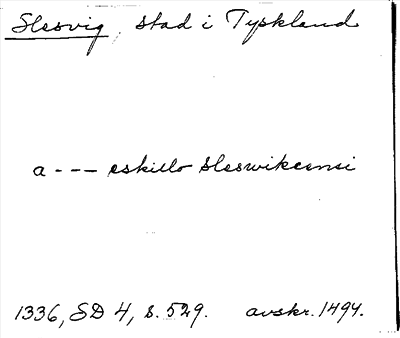 Slesvig, stad i Tyskland
a --- eskillo sleswikcensi
1336, SD 4, s. 529. avskr. 1494.